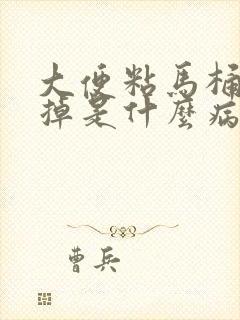 大便粘馬桶
掉是什麼病
曹兵